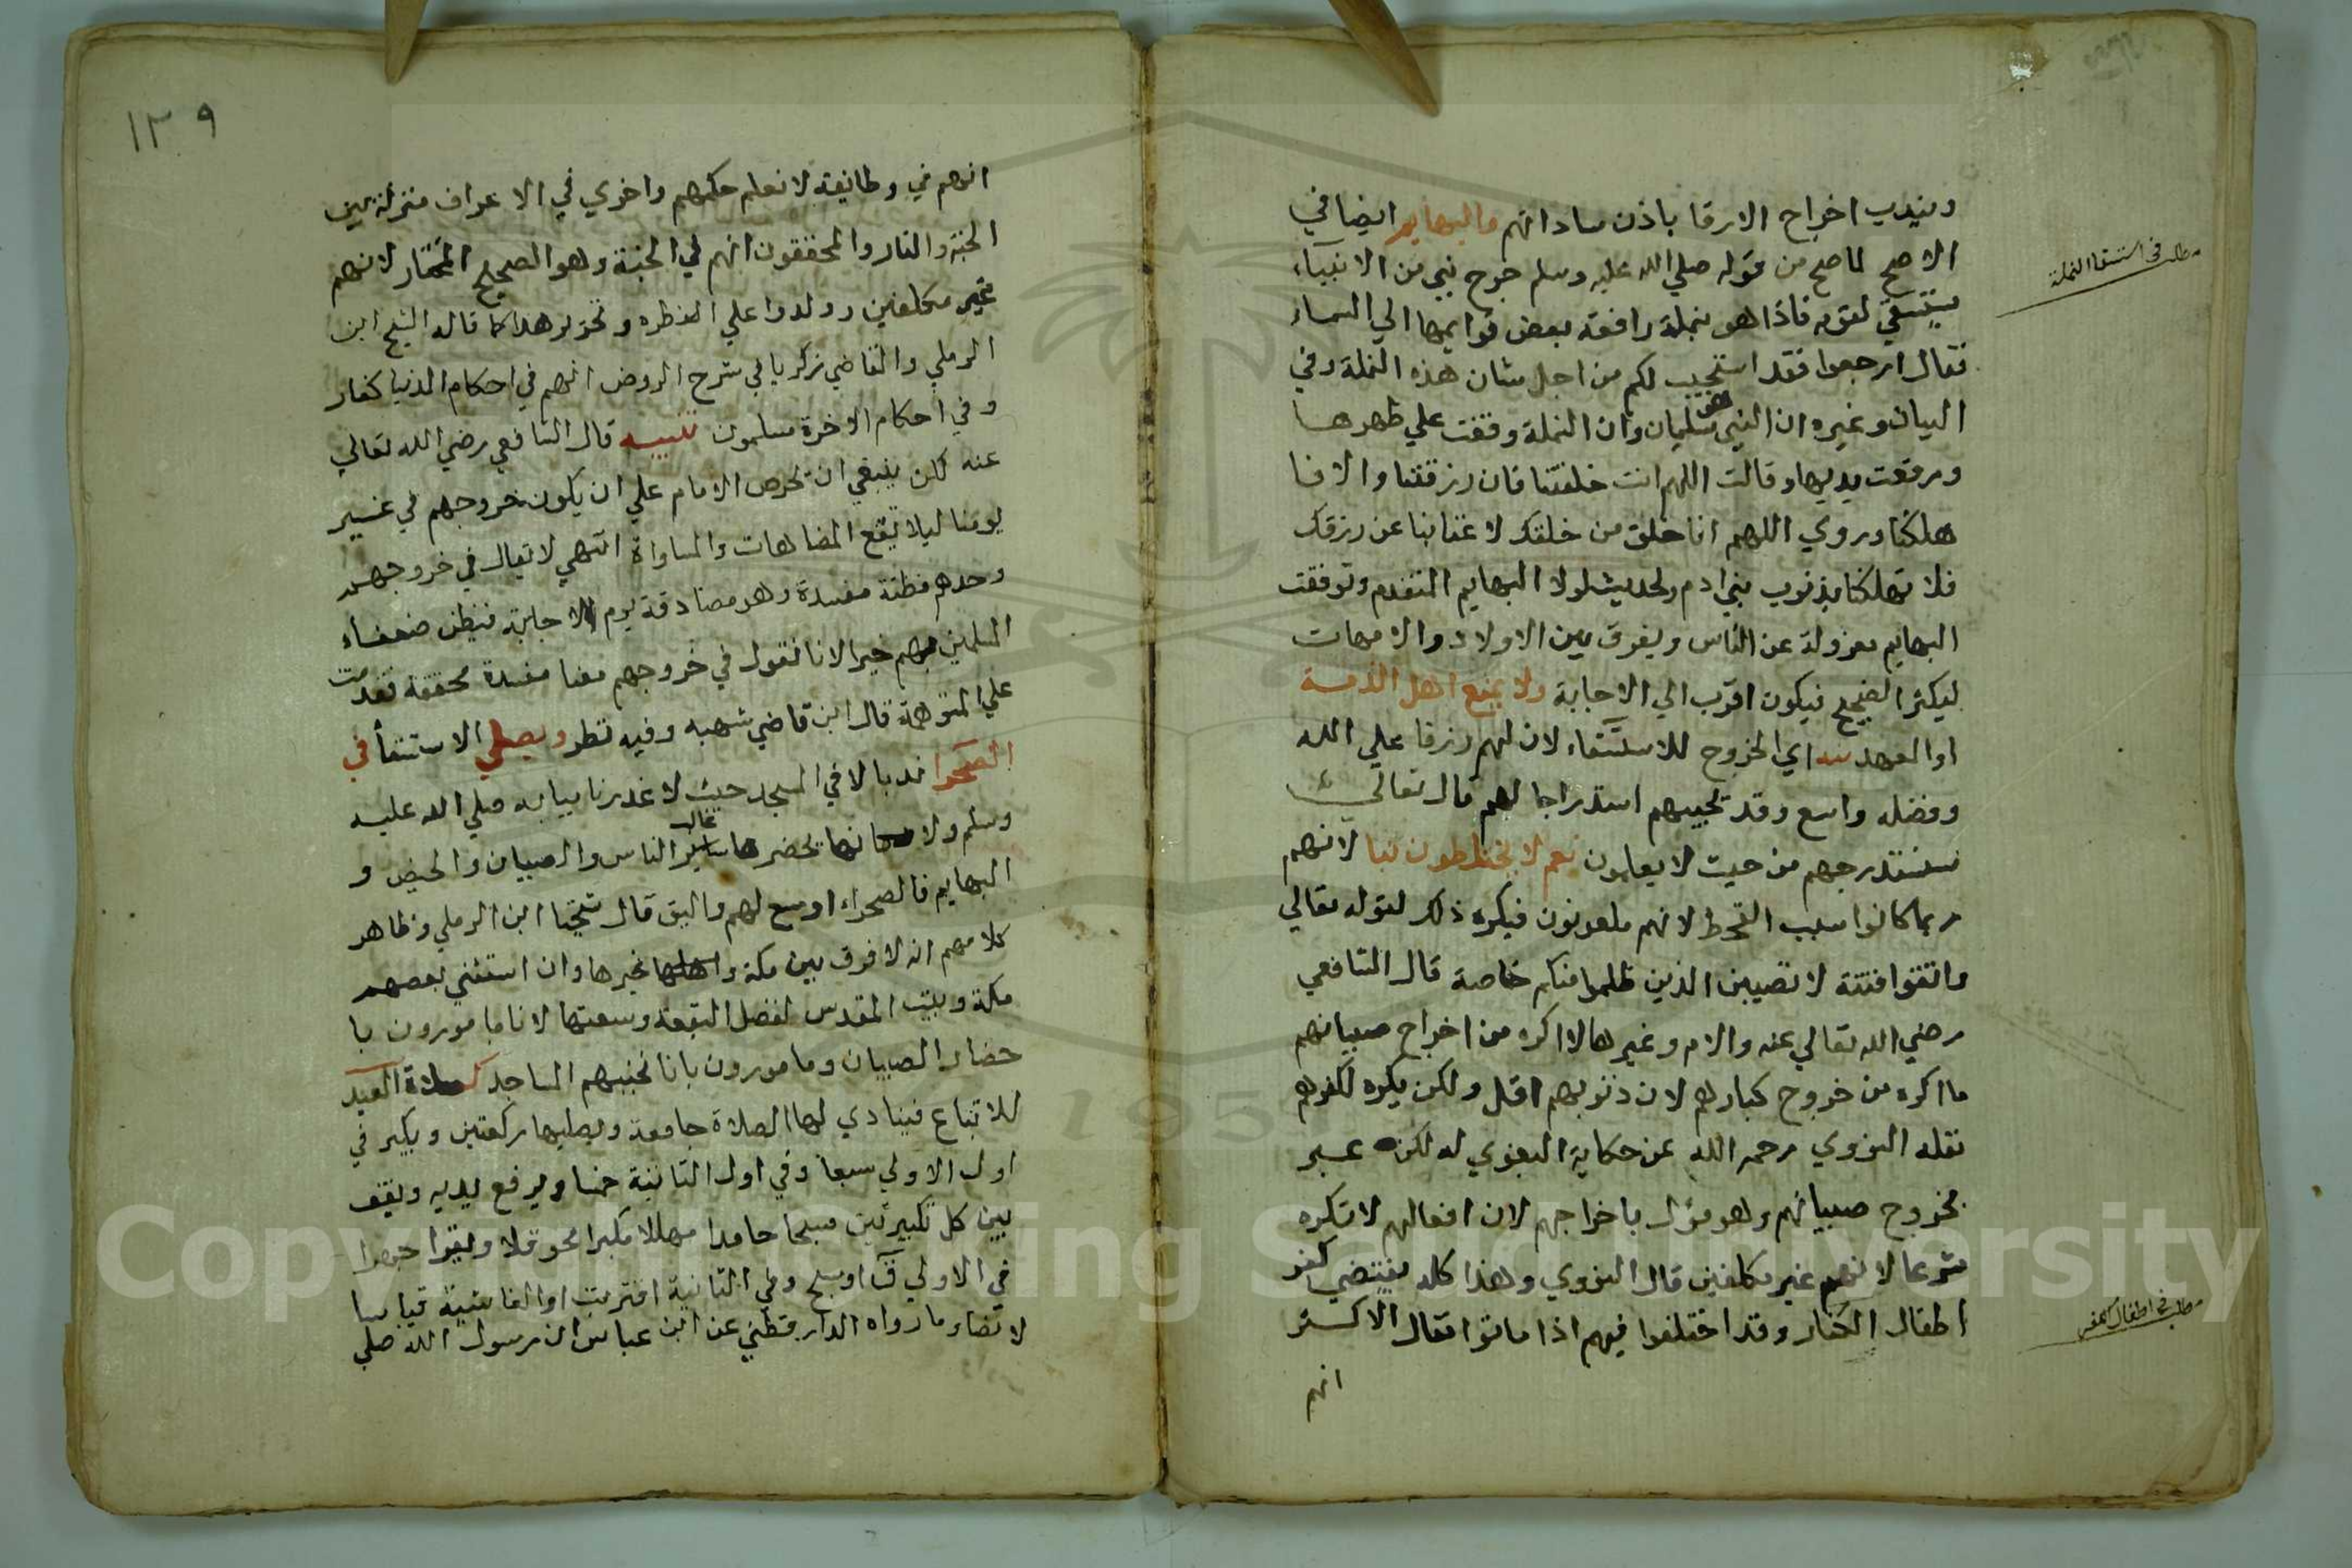 ويندب اخراج الارقا باذن ساداتهم والبهايم ايضا في
الاصح لما صح من قوله صلي الله عليه وسلم خرج نبي من الانبياء
مطلب في استسقا النملة
يستسقي لقومه فاذا هو بنملة رافعة بعض قوايمها الي السماء
فقال ارجعوا فقد استجيب لكم من اجل شان هذه النملة وفي
البيان وغيره ان النبي هو سليمان وان النملة وقعت علي ظهرها
ورفعت يديها وقالت اللهم انت خلقتنا فان رزقتنا والا فا
هلكنا وروي اللهم انا خلق من خلقك لا غنا بنا عن رزقك
فلا تهلكنا بذنوب بني ادم ولحديث لولا البهايم المتقدم وتوقفت
البهايم معزولة عن الناس ويفرق بين الاولاد والامهات
ليكثر الضجيج فيكون اقرب الي الاجابة ولا يمنع اهل الذمة
او العهد اي الخروج للاستسقاء لان لهم رزقا علي الله
وفضله واسع وقد تجيبهم استدراجا لهم قال تعالي
سنستدرجهم من حيث لا يعلمون نعم لا يختلطون بنا لانهم
ربما كانوا سبب القحط لانهم ملعونون فيكره ذلك لقوله تعالي
واتقوا فتنة لا تصيبن الذين ظلموا منكم خاصة قال الشافعي
رضي الله تعالي عنه والام وغيرها لا اكره من اخراج صبيانهم
ما اكره من خروج كبارهم لان ذنوبهم اقل ولكن يكره لكفرهم
نقله النووي رحمه الله عن حكاية البغوي له لكنه عبر
بخروج صبيانهم وهو مؤل باخراجهم لان افعالهم لا تكره
شرعا لانهم غير مكلفين قال النووي وهذا كله يقتضي كفر
اطفال الكفار وقد اختلفوا فيهم اذا ماتوا فقال الاكثر
مطلب في اطفال الكفر
انهم
١٣٩
انهم في وطايفة لا نعلم حكمهم واخري في الاعراف منزلة بين
الجنة والنار والمحققون انهم في الجنة وهو الصحيح المختار لانهم
غير مكلفين وولدوا علي الفطره وتحرير هذا كما قاله الشيخ ابن
الرملي والقاضي زكريا في شرح الروض انهم في احكام الدنيا كفار
وفي احكام الاخرة مسلمون تنبيه قال الشافعي رضي الله تعالي
عنه لكن ينبغي ان يحرص الامام علي ان يكون خروجهم في غير
يومنا ليلا تقع المضاهات والمساواة انتهي لا يقال في خروجهم
وحدهم مظنة مفسدة وهو مصادقة يوم الاجابة فيظن ضعفاء
المسلمين بهم خيرا لانا نقول في خروجهم معنا مفسدة محققة فقدمت
علي المتوهمة قال ابن قاضي شهبه وفيه نظر ويصلي الاستسقأ في
الصحرا ندبا لا في المسجد حيث لا عذر تاسيا به صلي الله عليه
وسلم ولانها يحضرها غالب الناس والصبيان والحيض و
البهايم فالصحراء اوسع لهم واليق قال شيخنا ابن الرملي وظاهر
كلامهم انه لا فرق بين مكة وغيرها وان استثني بعضهم
مكة وبيت المقدس لفضل البقعة وسعتها لانا مامورون با
حضار الصبيان ومامورون بانا نجنبهم المساجد كصلاة العيد
للاتباع فينادي لها الصلاة جامعة ويصليها ركعتين ويكبر في
اول الاولي سبعا وفي اول الثانية خمسا ويرفع يديه ويقف
بين كل تكبيرتين مسبحا حامدا مهللا مكبرا محوقلا ويقرا جهرا
في الاولي ق او سبح وفي الثانية اقتربت او الغاشية قياسا
لا نصا وما رواه الدارقطني عن ابن عباس ان رسول الله صلي
Copyright © King Saud University
195